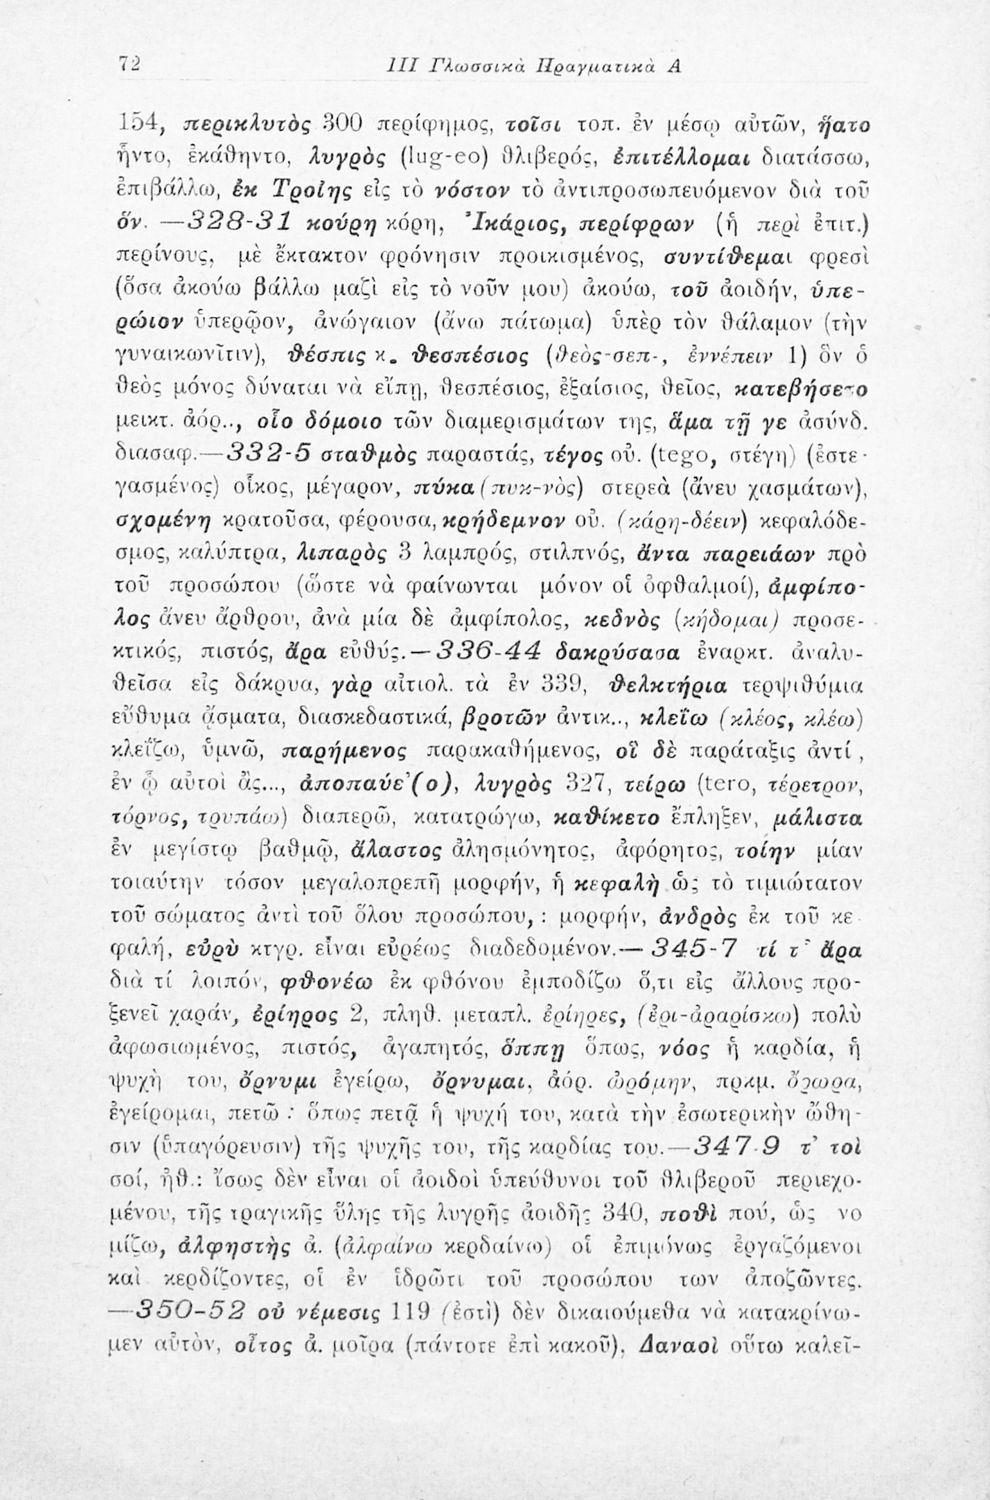 72 III Γλωσσικὰ Πραγματικὰ Α
154, περικλυτὸς 300 περίφημος, τοῖσι τοπ. ἐν μέσῳ αὐτῶν, ἥατο
ἧντο, ἐκάθηντο, λυγρὸς (lug-eo) θλιβερός, ἐπιτέλλομαι διατάσσω,
ἐπιβάλλω, ἐκ Τροίης εἰς τὸ νόστον τὸ ἀντιπροσωπευόμενον διὰ τοῦ
ὅν. —328-31 κούρη κόρη, Ἰκάριος, περίφρων (ἡ περὶ ἐπιτ.)
περίνους, μὲ ἔκτακτον φρόνησιν προικισμένος, συντίθεμαι φρεσὶ
(ὅσα ἀκούω βάλλω μαζὶ εἰς τὸ νοῦν μου) ἀκούω, τοῦ ἀοιδήν, ὑπε-
ρώιον ὑπερῷον, ἀνώγαιον (ἄνω πάτωμα) ὑπὲρ τὸν θάλαμον (τὴν
γυναικωνῖτιν), θέσπις κ. θεσπέσιος (θεὸς-σεπ-, ἐννέπειν 1) ὃν ὁ
θεὸς μόνος δύναται νὰ εἴπῃ, θεσπέσιος, ἐξαίσιος, θεῖος, κατεβήσετο
μεικτ. ἀόρ.., οἷο δόμοιο τῶν διαμερισμάτων της, ἅμα τῇ γε ἀσύνδ.
διασαφ.—332-5 σταθμὸς παραστάς, τέγος οὐ. (tego, στέγη) (ἐστε-
γασμένος) οἶκος, μέγαρον, πύκα (πυκ-νὸς) στερεὰ (ἄνευ χασμάτων),
σχομένη κρατοῦσα, φέρουσα, κρήδεμνον οὐ. (κάρη-δέειν) κεφαλόδε-
σμος, καλύπτρα, λιπαρὸς 3 λαμπρός, στιλπνός, ἄντα παρειάων πρὸ
τοῦ προσώπου (ὥστε νὰ φαίνωνται μόνον οἱ ὀφθαλμοί), ἀμφίπο-
λος ἄνευ ἄρθρου, ἀνὰ μία δὲ ἀμφίπολος, κεδνὸς (κήδομαι) προσε-
κτικός, πιστός, ἄρα εὐθύς.—336-44 δακρύσασα ἐναρκτ. ἀναλυ-
θεῖσα εἰς δάκρυα, γὰρ αἰτιολ. τὰ ἐν 339, θελκτήρια τερψιθύμια
εὔθυμα ᾄσματα, διασκεδαστικά, βροτῶν ἀντικ.., κλείω (κλέος, κλέω)
κλεΐζω, ὑμνῶ, παρήμενος παρακαθήμενος, οἳ δὲ παράταξις ἀντί,
ἐν ᾧ αὐτοὶ ἂς..., ἀποπαύε'(ο), λυγρὸς 327, τείρω (tero, τέρετρον,
τόρνος, τρυπάω) διαπερῶ, κατατρώγω, καθίκετο ἔπληξεν, μάλιστα
ἐν μεγίστῳ βαθμῷ, ἄλαστος ἀλησμόνητος, ἀφόρητος, τοίην μίαν
τοιαύτην τόσον μεγαλοπρεπῆ μορφήν, ἡ κεφαλὴ ὡς τὸ τιμιώτατον
τοῦ σώματος ἀντὶ τοῦ ὅλου προσώπου, : μορφήν, ἀνδρὸς ἐκ τοῦ κε
φαλή, εὐρὺ κτγρ. εἶναι εὐρέως διαδεδομένον.— 345-7 τί τ' ἄρα
διὰ τί λοιπόν, φθονέω ἐκ φθόνου ἐμποδίζω ὅ,τι εἰς ἄλλους προ-
ξενεῖ χαράν, ἐρίηρος 2, πληθ. μεταπλ. ἐρίηρες, (ἐρι-ἀραρίσκω) πολὺ
ἀφωσιωμένος, πιστός, ἀγαπητός, ὅππῃ ὅπως, νόος ἡ καρδία, ἡ
ψυχὴ του, ὄρνυμι ἐγείρω, ὄρνυμαι, ἀόρ. ὠρόμην, πρκμ. ὄρωρα,
ἐγείρομαι, πετῶ : ὅπως πετᾷ ἡ ψυχή του, κατὰ τὴν ἐσωτερικὴν ὤθη-
σιν (ὑπαγόρευσιν) τῆς ψυχῆς του, τῆς καρδίας του.—347-9 τ' τοὶ
σοί, ἠθ.: ἴσως δὲν εἶναι οἱ ἀοιδοὶ ὑπεύθυνοι τοῦ θλιβεροῦ περιεχο-
μένου, τῆς τραγικῆς ὕλης τῆς λυγρῆς ἀοιδῆς 340, ποθὶ πού, ὡς νο
μίζω, ἀλφηστὴς ἀ. (ἀλφαίνω κερδαίνω) οἱ ἐπιμόνως ἐργαζόμενοι
καὶ κερδίζοντες, οἱ ἐν ἱδρῶτι τοῦ προσώπου των ἀποζῶντες.
—350-52 οὐ νέμεσις 119 (ἐστὶ) δὲν δικαιούμεθα νὰ κατακρίνω-
μεν αὐτὸν, οἶτος ἀ. μοῖρα (πάντοτε ἐπὶ κακοῦ), Δαναοὶ οὕτω καλεῖ-